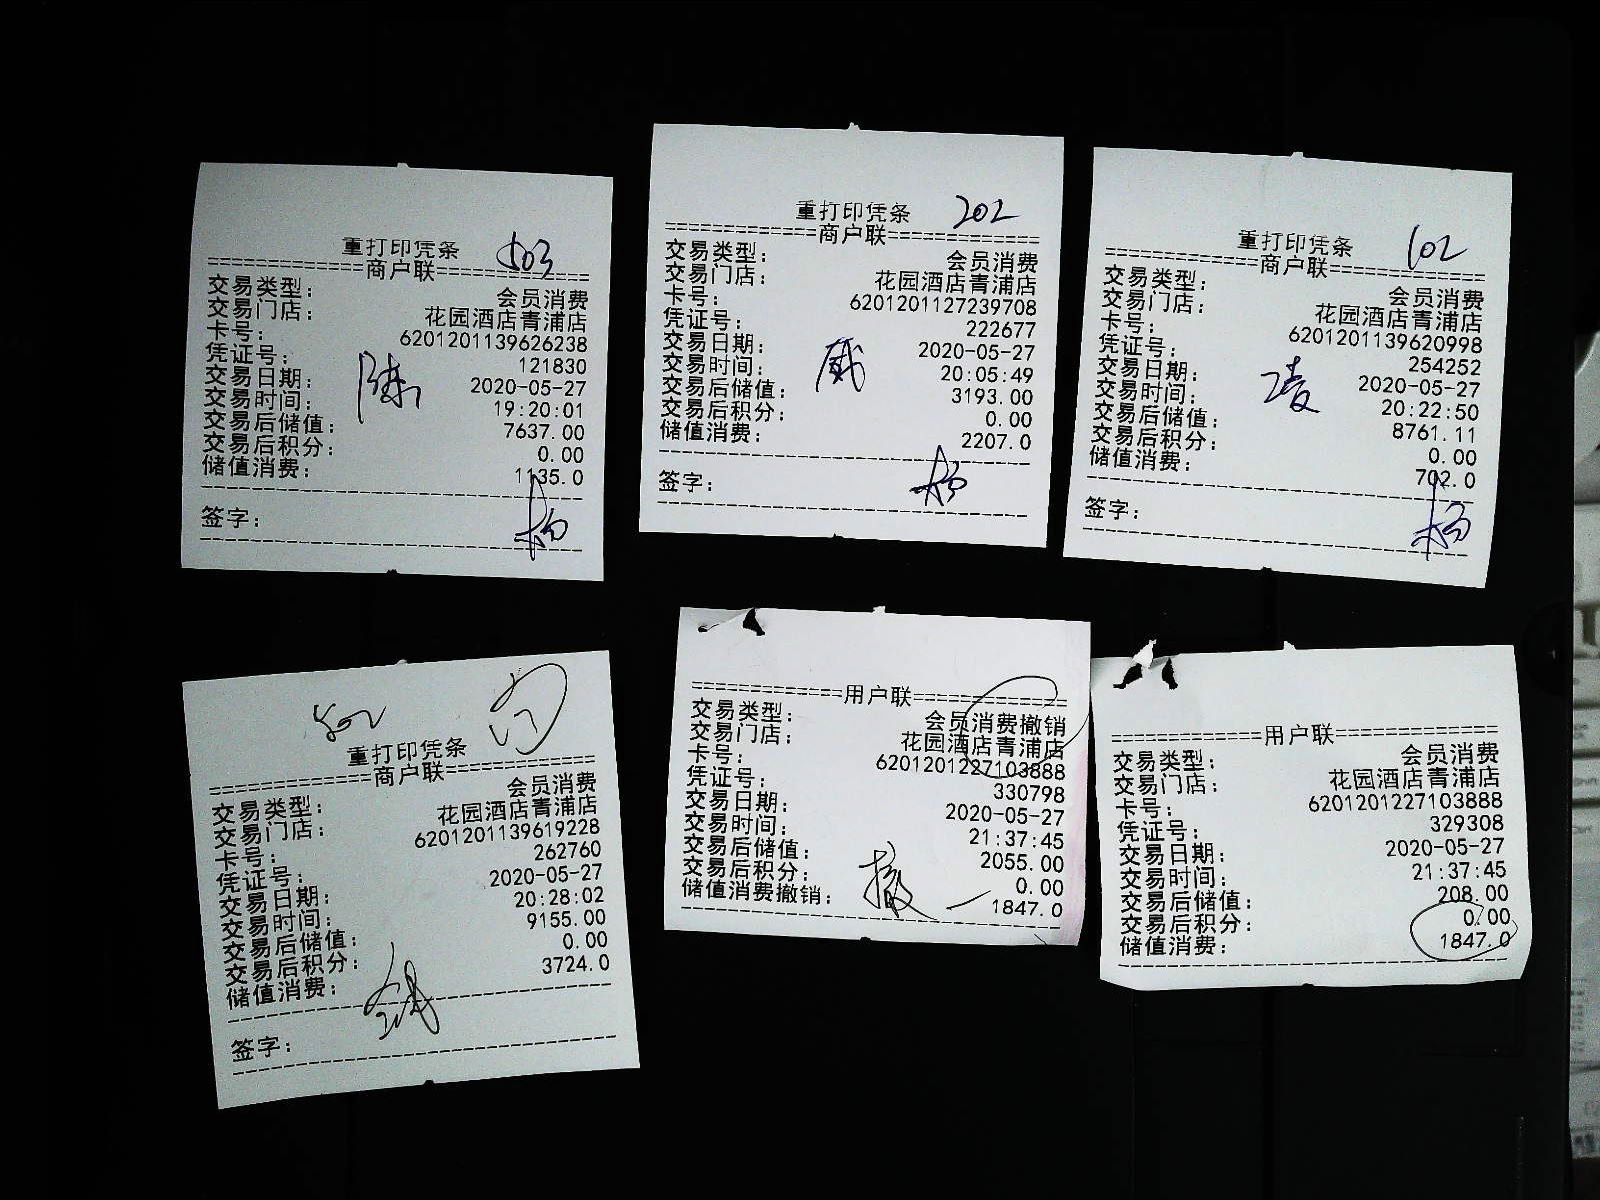 重打印凭条 503
============商户联============
交易类型： 会员消费
交易门店： 花园酒店青浦店
卡号： 6201201139626238
凭证号： 121830
交易日期： 2020-05-27
交易时间： 19:20:01
交易后储值： 7637.00
交易后积分： 0.00
储值消费： 1135.0
陈
签字： 杨
重打印凭条 202
============商户联============
交易类型： 会员消费
交易门店： 花园酒店青浦店
卡号： 6201201127239708
凭证号： 222677
交易日期： 2020-05-27
交易时间： 20:05:49
交易后储值： 3193.00
交易后积分： 0.00
储值消费： 2207.0
签字： 杨
重打印凭条 102
============商户联============
交易类型： 会员消费
交易门店： 花园酒店青浦店
卡号： 6201201139620998
凭证号： 254252
交易日期： 2020-05-27
交易时间： 20:22:50
交易后储值： 8761.11
交易后积分： 0.00
储值消费： 702.0
凌
签字： 杨
502
重打印凭条
============商户联============
交易类型： 会员消费
交易门店： 花园酒店青浦店
卡号： 6201201139619228
凭证号： 262760
交易日期： 2020-05-27
交易时间： 20:28:02
交易后储值： 9155.00
交易后积分： 0.00
储值消费： 3724.0
签字：
============用户联============
交易类型： 会员消费撤销
交易门店： 花园酒店青浦店
卡号： 6201201227103888
凭证号： 330798
交易日期： 2020-05-27
交易时间： 21:37:45
交易后储值： 2055.00
交易后积分： 0.00
储值消费撤销： 1847.0
撤
============用户联============
交易类型： 会员消费
交易门店： 花园酒店青浦店
卡号： 6201201227103888
凭证号： 329308
交易日期： 2020-05-27
交易时间： 21:37:45
交易后储值： 208.00
交易后积分： 0.00
储值消费： 1847.0